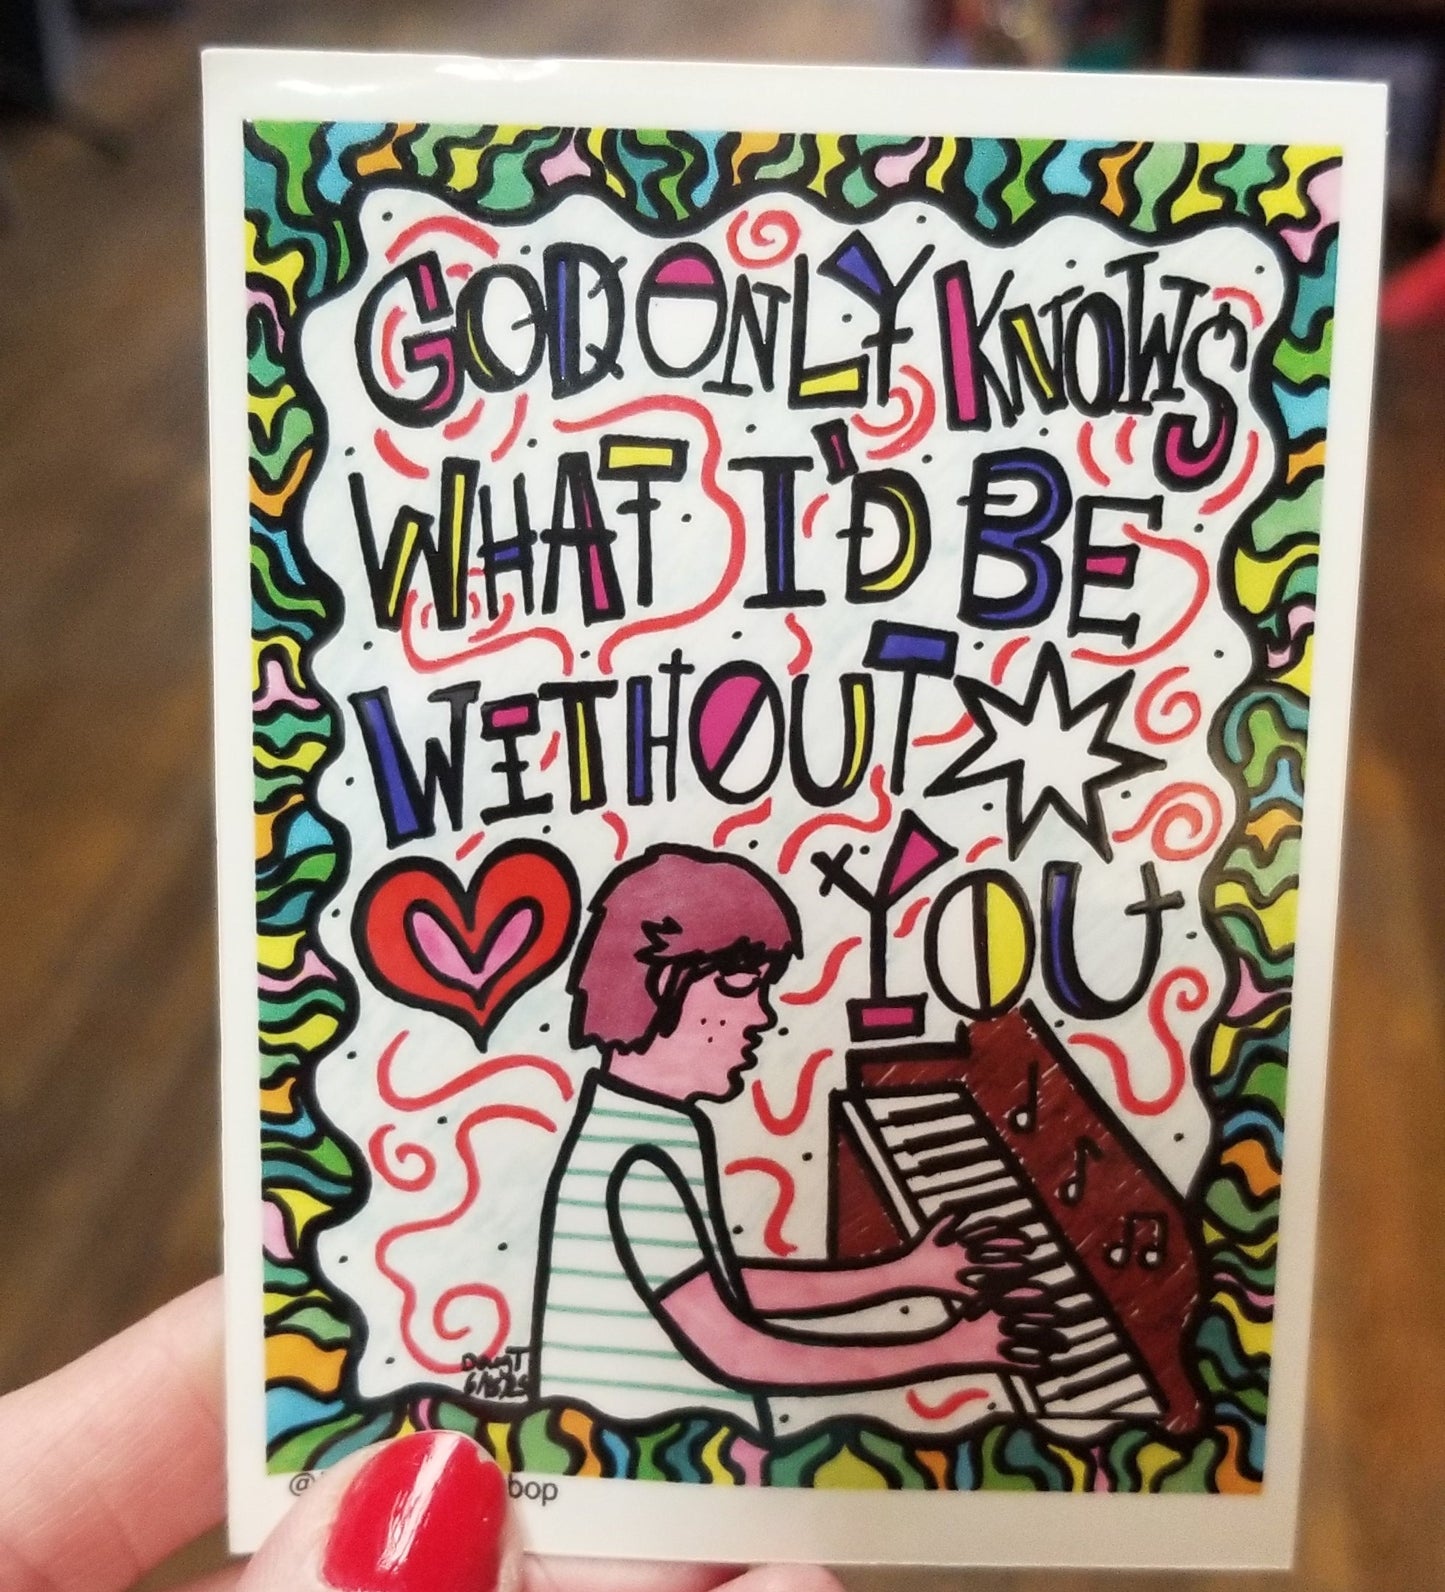 GOD ONLY KNOWS
WHAT I'D BE
WITHOUT
YOU
DougT
bop